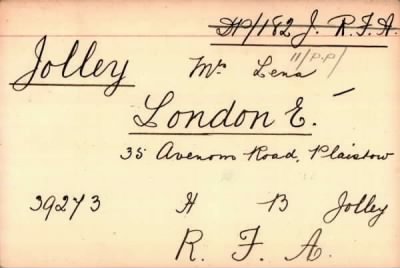 SP/182 J. R. F. A.
11/P.P/
Jolley Mrs Lena
London E.
35 Avenom Road, Plaistow
39273 H B Jolley
R. F. A.